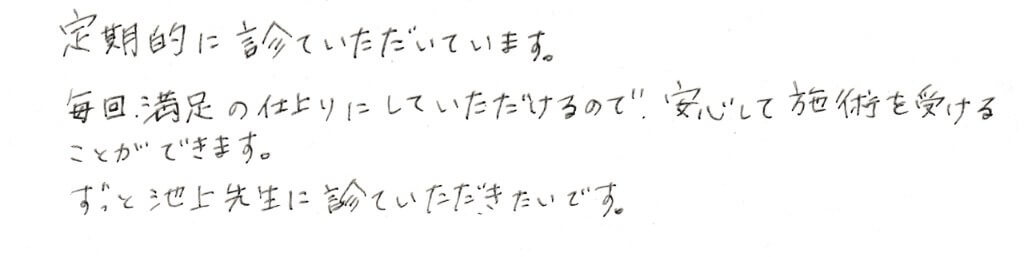 定期的に診ていただいています。
毎回、満足の仕上りにしていただけるので、安心して施術を受ける
ことができます。
ずっと池上先生に診ていただきたいです。